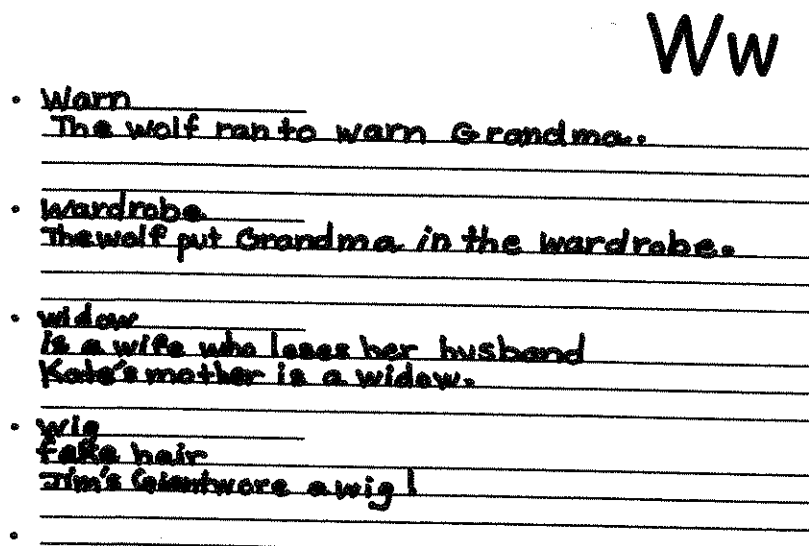 Ww
Warn
The wolf ran to warn Grandma.
Wardrobe
The wolf put Grandma in the wardrobe.
widow
is a wife who loses her husband
Kate's mother is a widow.
wig
fake hair
Jim's Giant wore a wig!